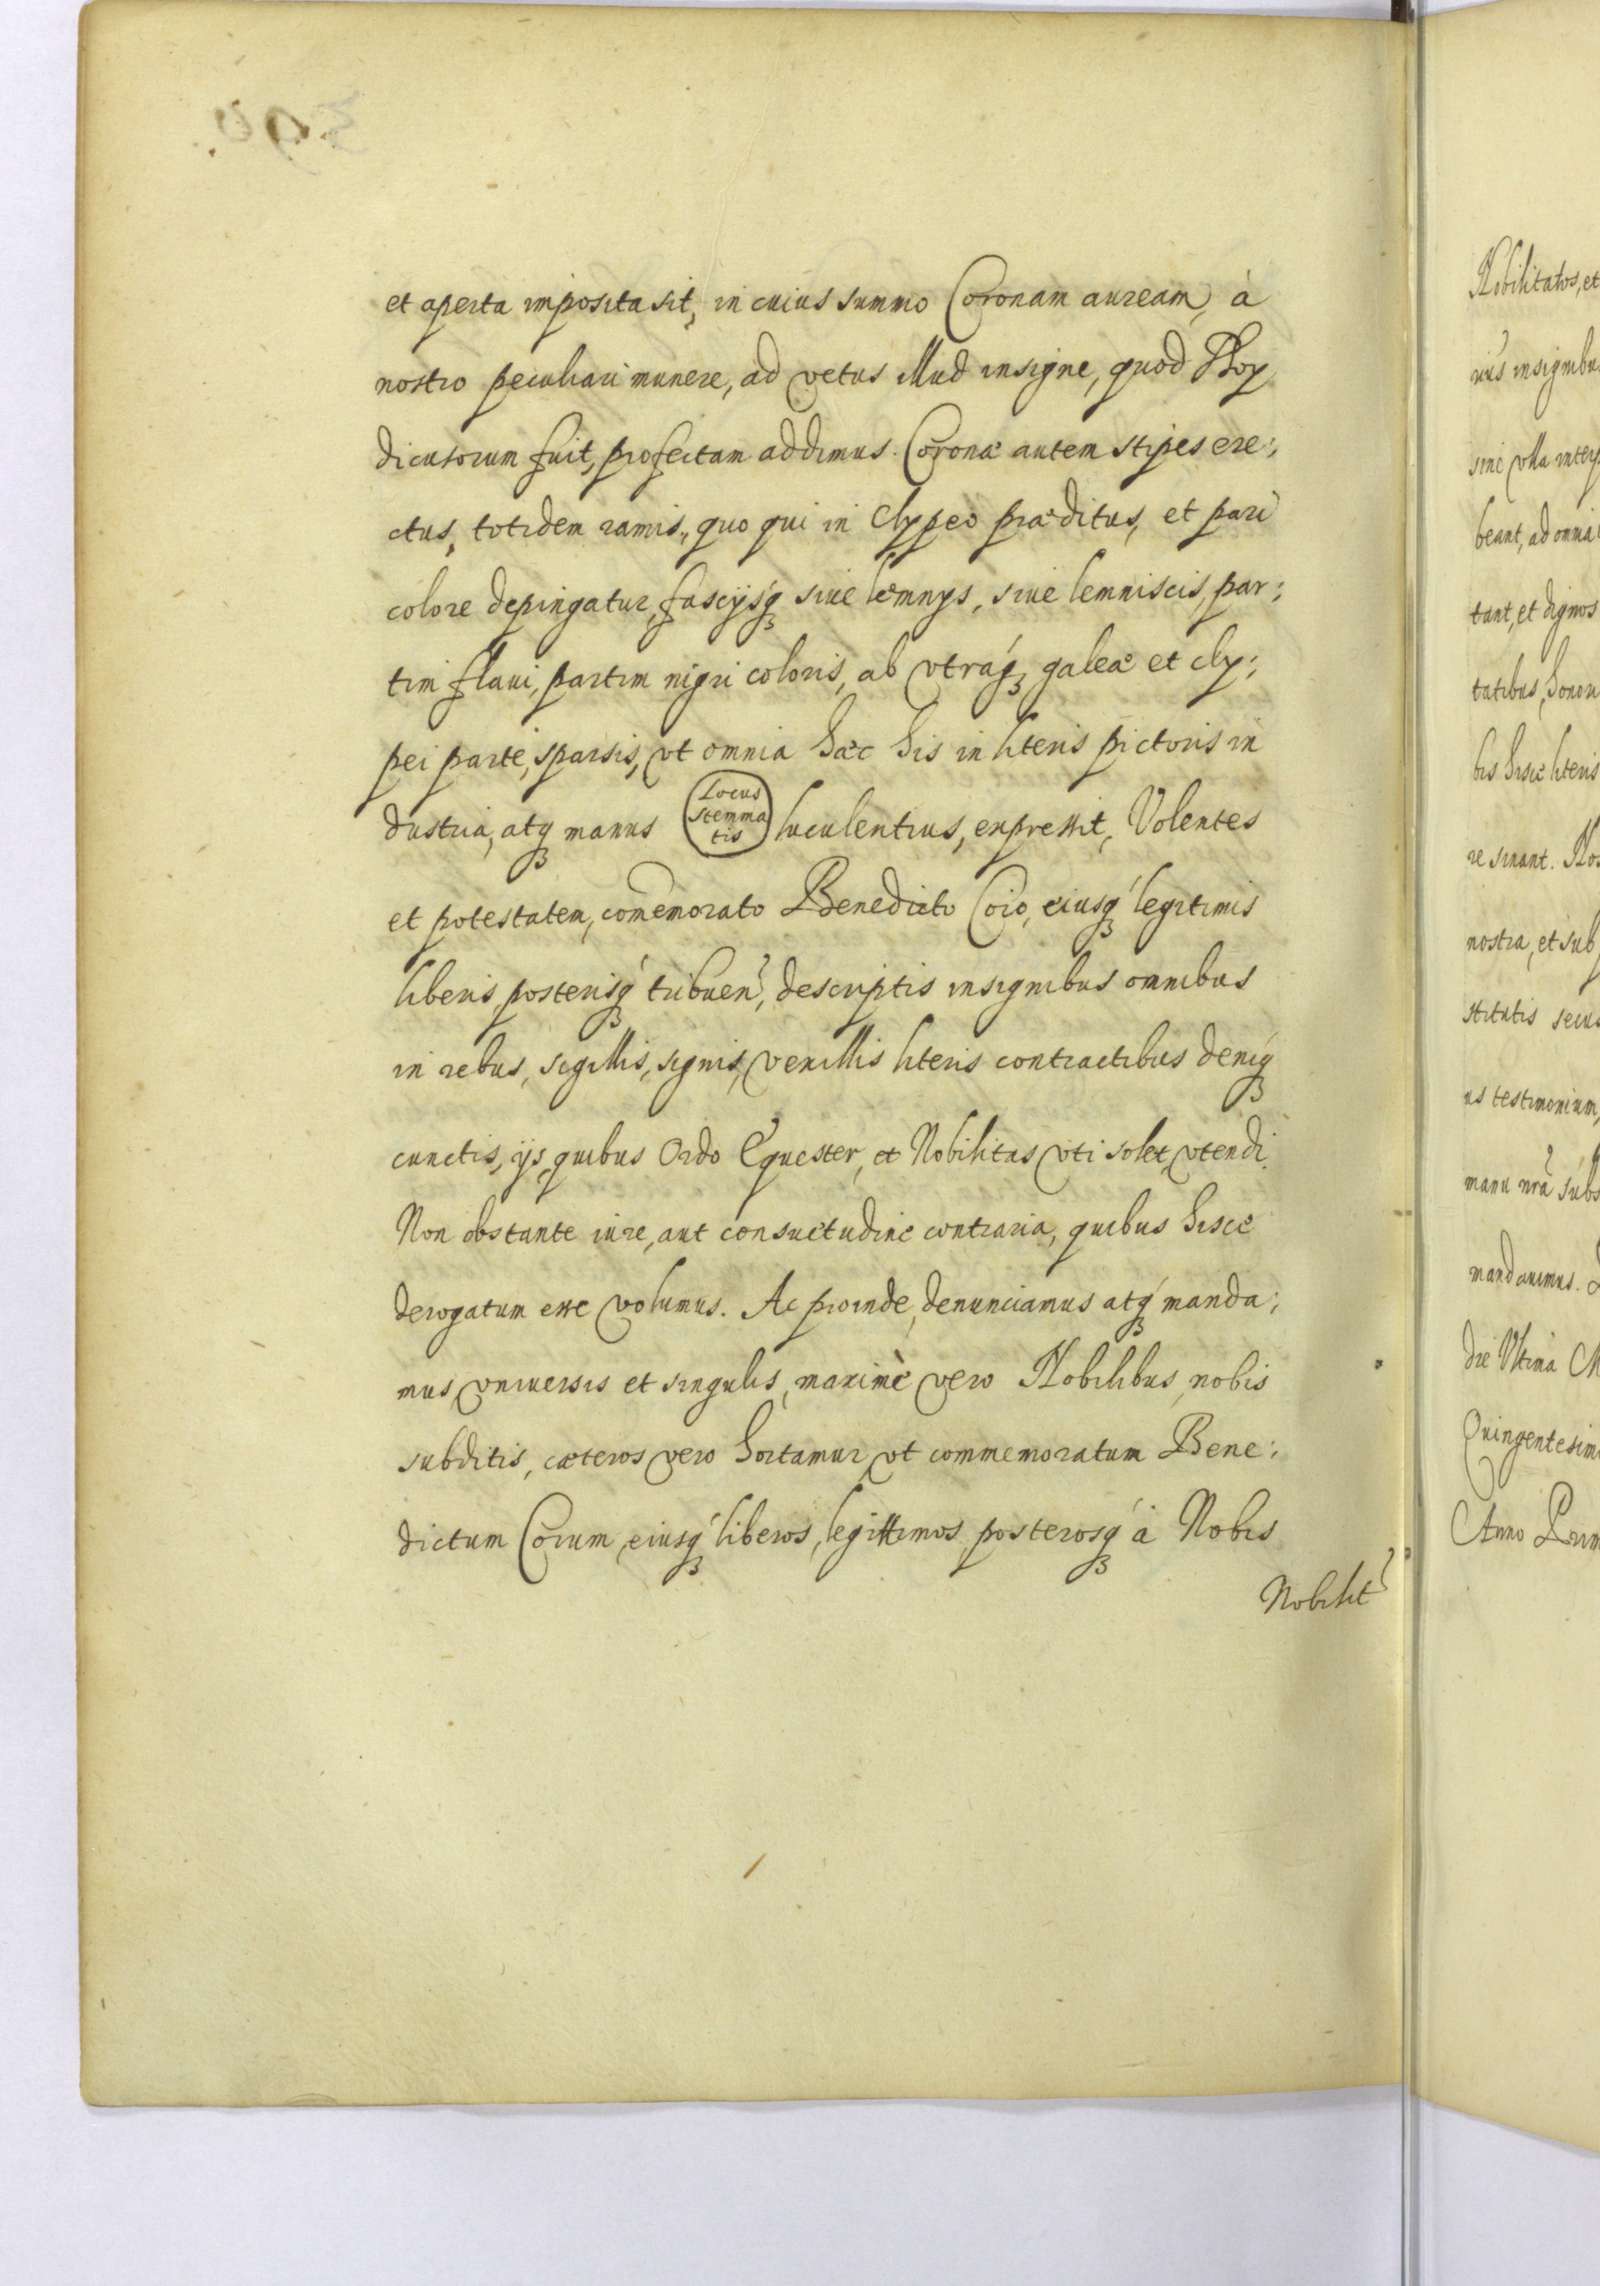 et aperta imposita sit, in cuius summo Coronam auream, à
nostro peculiari munere, ad vetus illud insigne, quod
dicusorum fuit, profectam addimus. Coronæ autem stipes ere:
ctus, totidem ramis, quo qui in Clypeo præditus, et pari
colore depingatur, fascijsq́ꝫ siue lemnys, siue lemniscis, par:
tim flaui, partim nigri coloris, ab vtráqꝫ galeæ et cly:
pei parte, sparsis, vt omnia hæc his in literis pictoris in
dustria, atqꝫ manus
Locus
Stemma
tis
luculentius, expressit, Volentes
et potestatem, com̃emorato Benedicto Coro, eiusq́ꝫ legitimis
liberis posterisq́ꝫ tribuen̉, descriptis insignibus omnibus
in rebus, sigillis, signis, vexillis literis contractibus deniq́ꝫ
cunctis, ijs, quibus Ordo Equester, et Nobilitas vti solet, vtendi.
Non obstante iure, aut consuetudine contraria, quibus hisce
derogatum esse volumus. Ac proinde, denunciamus atq́ꝫ manda:
mus, vniuersis et singulis, maximè vero Nobilibus, nobis
subditis, cæteros vero hortamur, vt commemoratum Bene:
dictum Corum, eiusq́ꝫ liberos, legittimos, posterosq́ꝫ à Nobis
Nobilit̉
Nobilitatos, et
insignibu
sine vlla inter
beant, ad omnia
tant, et dignos
tatibus, honori
bis hisce literis
re sinant. Nos
nostra, et sub
stitutis secus
us testimonium,
manu nr̃a subs
mandauimus.
die Vltima M
Quingentesim
Anno Prim